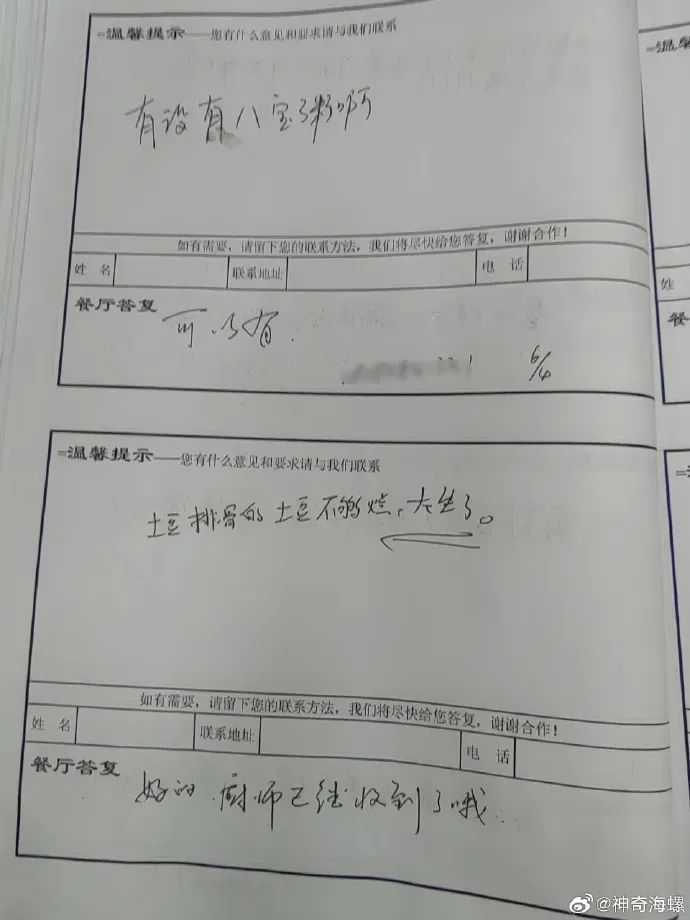 =温馨提示——您有什么意见和要求请与我们联系
有没有八宝粥啊
如有需要，请留下您的联系方法，我们将尽快给您答复，谢谢合作！
姓 名 联系地址 电 话
餐厅答复
可以有.
6/4
=温馨提示——您有什么意见和要求请与我们联系
土豆排骨的土豆不够烂，太生了。
如有需要，请留下您的联系方法，我们将尽快给您答复，谢谢合作！
姓 名 联系地址 电 话
餐厅答复
好的 厨师已经收到了哦
=温馨
姓
餐
=温
姓
餐
@神奇海螺